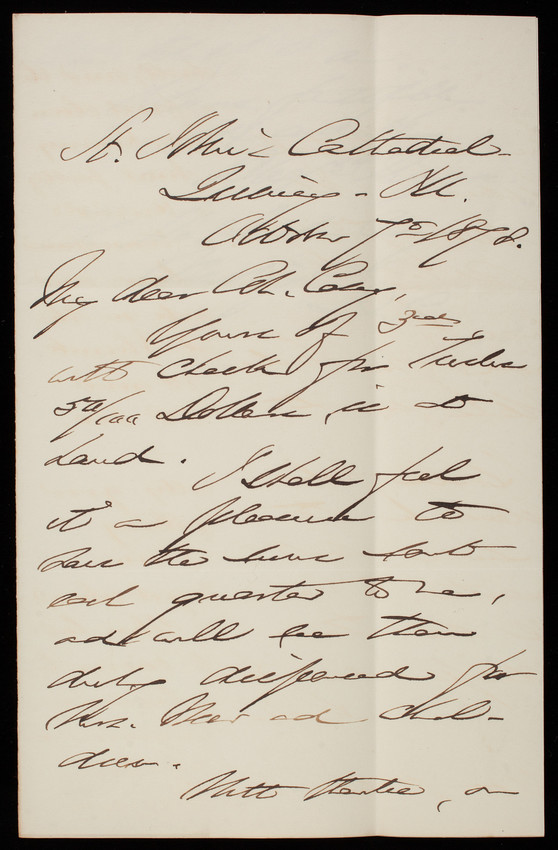 St. John's Cathedral -
Quincy - Ill.
October 7th 1878.
My dear Col. Casey,
Yours of 3rd
with check for Twelve
50/100 Dollars, is at
hand. I shall feel
it a pleasure to
have the sums sent
each quarter to me,
and will see them
duly dispensed for
Mrs. and chil-
dren.
With thanks, on